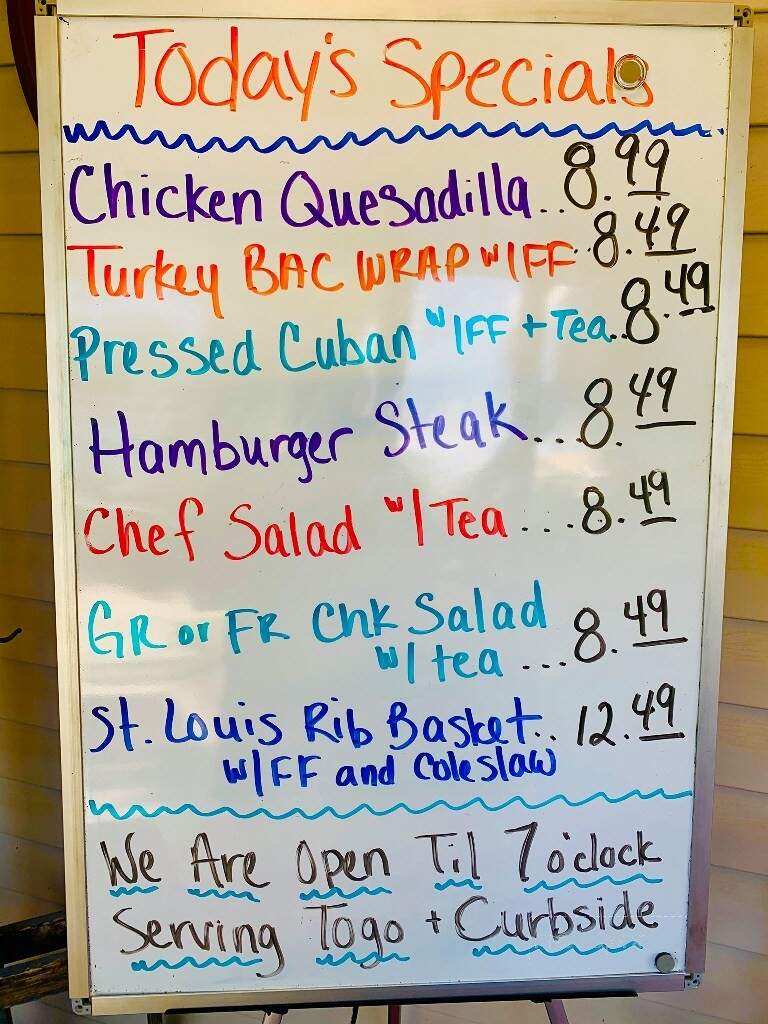 Today's Specials
Chicken Quesadilla..8.99
Turkey BAC WRAP w/FF..8.49
Pressed Cuban w/FF + Tea..8.49
Hamburger Steak...8.49
Chef Salad w/Tea...8.49
GR or FR Chk Salad
w/tea...8.49
St. Louis Rib Basket..12.49
w/FF and Coleslaw
We Are Open Til 7 o'clock
Serving Togo + Curbside